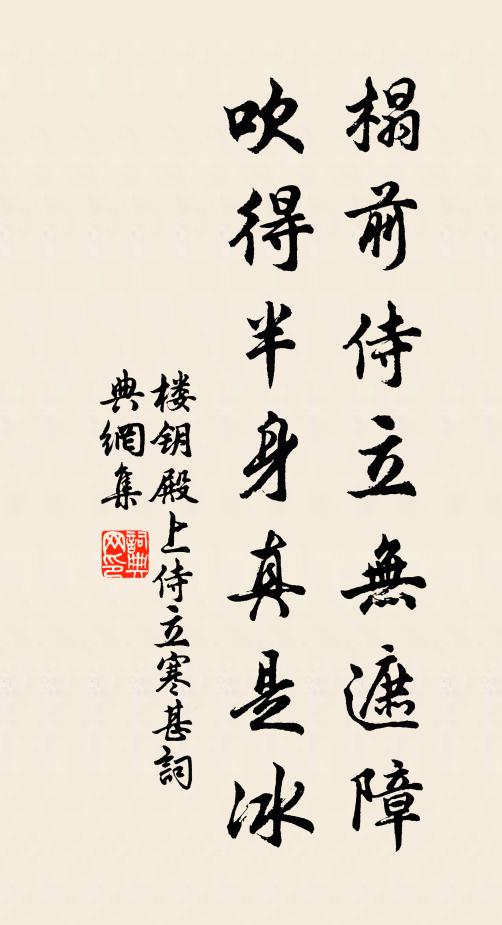 榻前侍立無遮障
吹得半身真是冰
楼钥殿上侍立寒甚詞
典網集
詞典网印